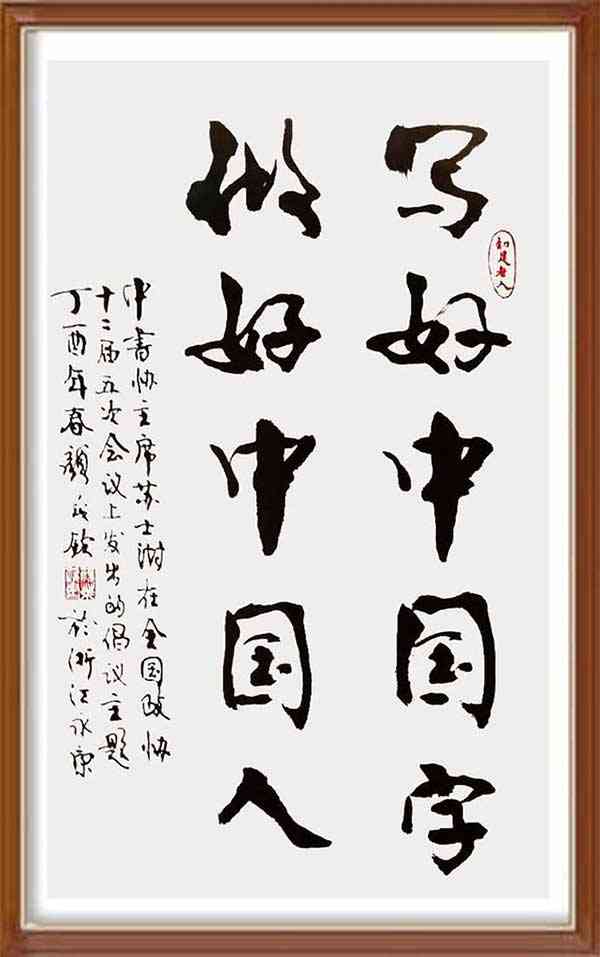 写好中国字
知足者人
做好中国人
中书协主席苏士澍在全国政协
十二届五次会议上发出的倡议主题
丁酉年春颜 铨
于浙江永康